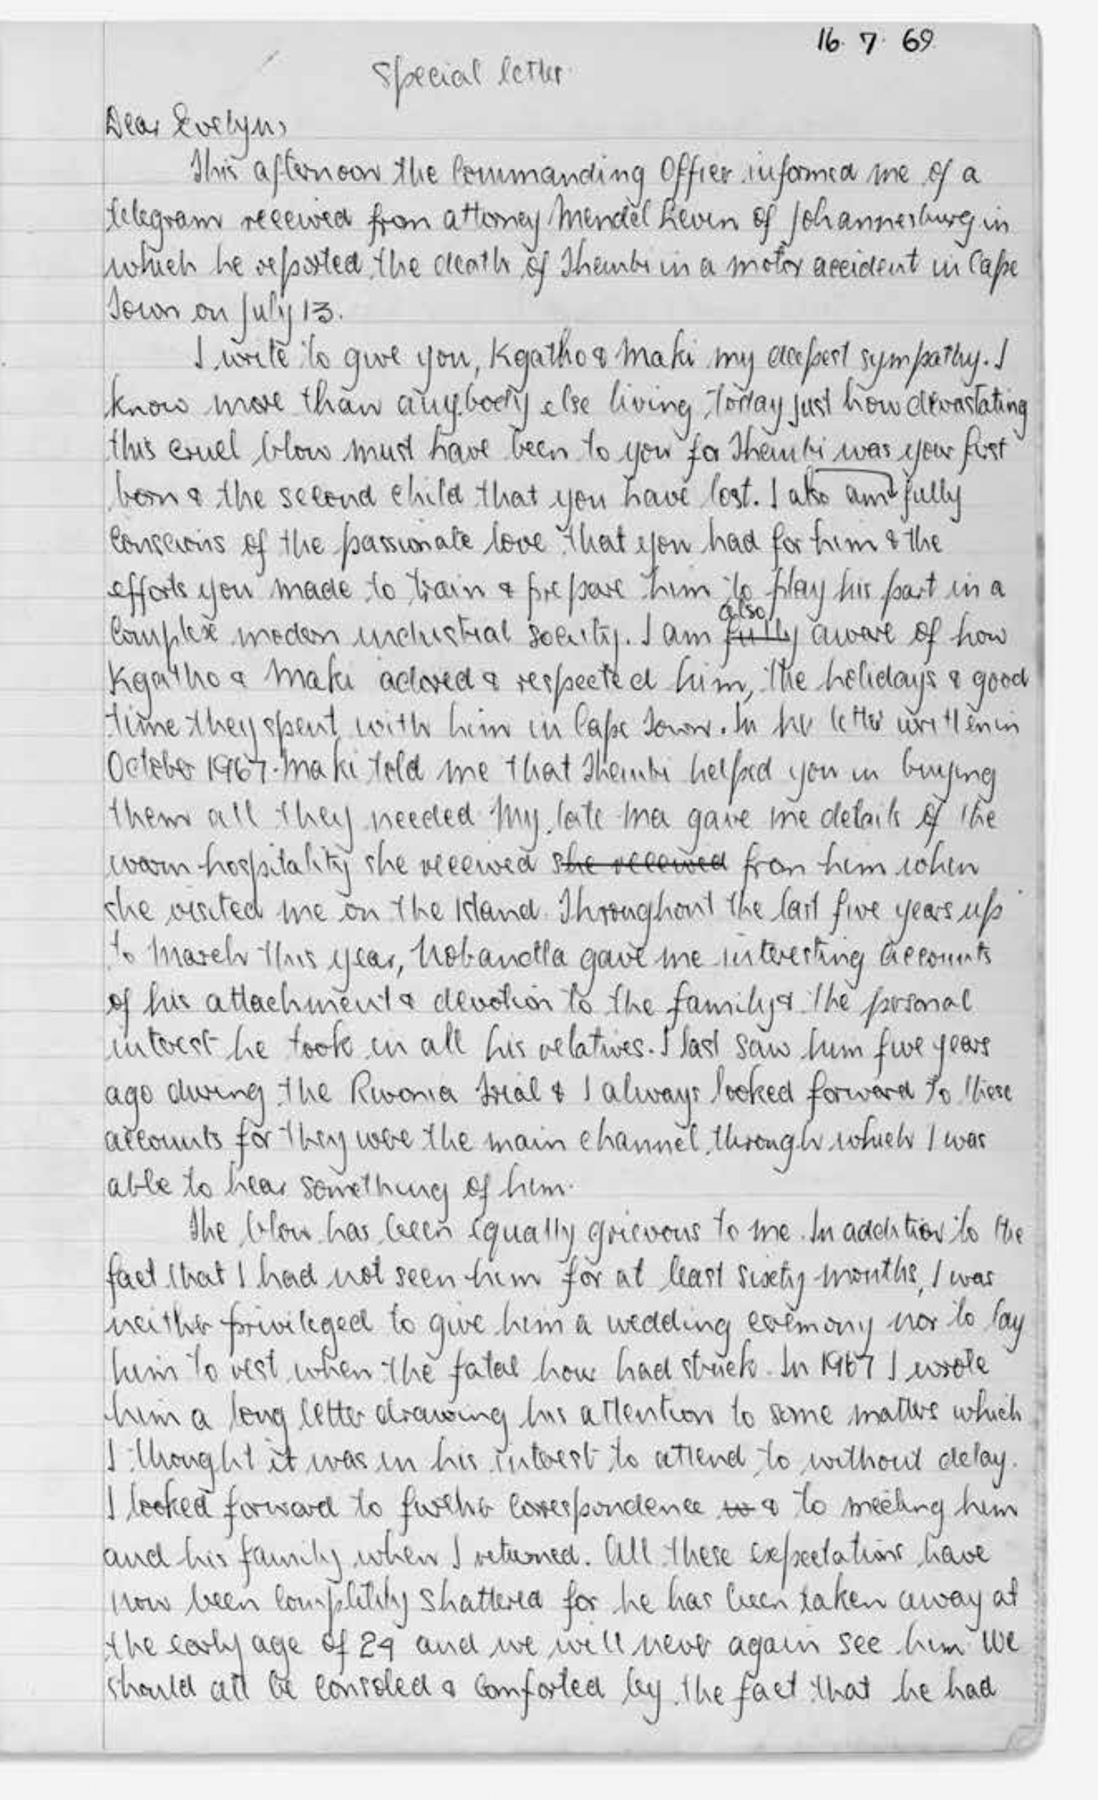 16. 7. 69
Special letter.
Dear Evelyn,
This afternoon the Commanding Officer informed me of a
telegram received from attorney Mendel Levin of Johannesburg in
which he reported the death of Thembi in a motor accident in Cape
Town on July 13.
I write to give you, Kgatho & Maki my deepest sympathy. I
know more than anybody else living today just how devastating
this cruel blow must have been to you for Thembi was your first
born & the second child that you have lost. I also am fully
conscious of the passionate love that you had for him & the
efforts you made to train & prepare him to play his part in a
complex modern industrial society. I am fully also aware of how
Kgatho & Maki adored & respected him, the holidays & good
time they spent with him in Cape Town. In her letter written in
October 1967 Maki told me that Thembi helped you in buying
them all they needed My late Ma gave me details of the
warm hospitality she received she received from him when
she visited me on the Island. Throughout the last five years up
to March this year, Nobandla gave me interesting accounts
of his attachment & devotion to the family & the personal
interest he took in all his relatives. I last saw him five years
ago during the Rivonia Trial & I always looked forward to these
accounts for they were the main channel through which I was
able to hear something of him.
The blow has been equally grievous to me. In addition to the
fact that I had not seen him for at least sixty months, I was
neither privileged to give him a wedding ceremony nor to lay
him to rest when the fatal hour had struck. In 1967 I wrote
him a long letter drawing his attention to some matters which
I thought it was in his interest to attend to without delay.
I looked forward to further correspondence to & to meeting him
and his family when I returned. All these expectations have
now been completely shattered for he has been taken away at
the early age of 24 and we will never again see him We
should all be consoled & comforted by the fact that he had